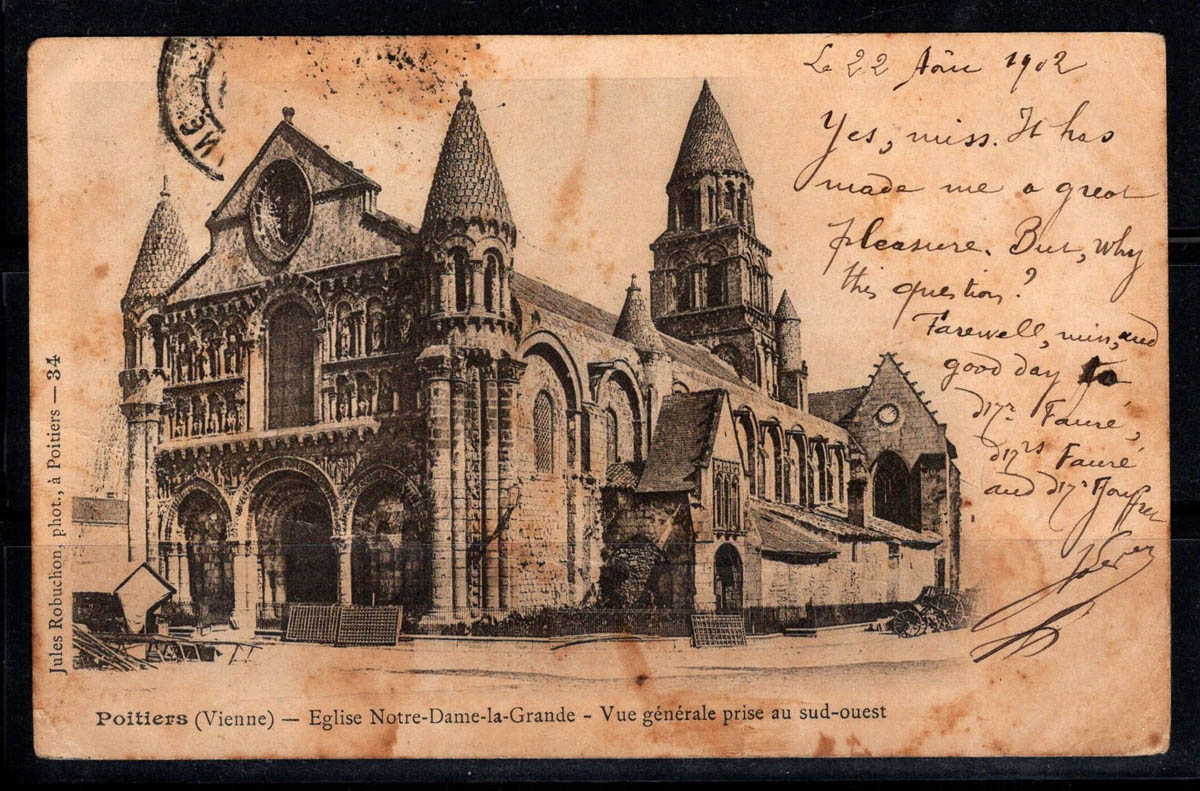 Le 22 Août 1902
Yes, miss. It has
made me a great
pleasure. But, why
this question?
Farewell, miss, and
good day to
Fauré,
Fauré
and
Jules Robuchon, phot., à Poitiers — 34
Poitiers (Vienne) — Eglise Notre-Dame-la-Grande - Vue générale prise au sud-ouest